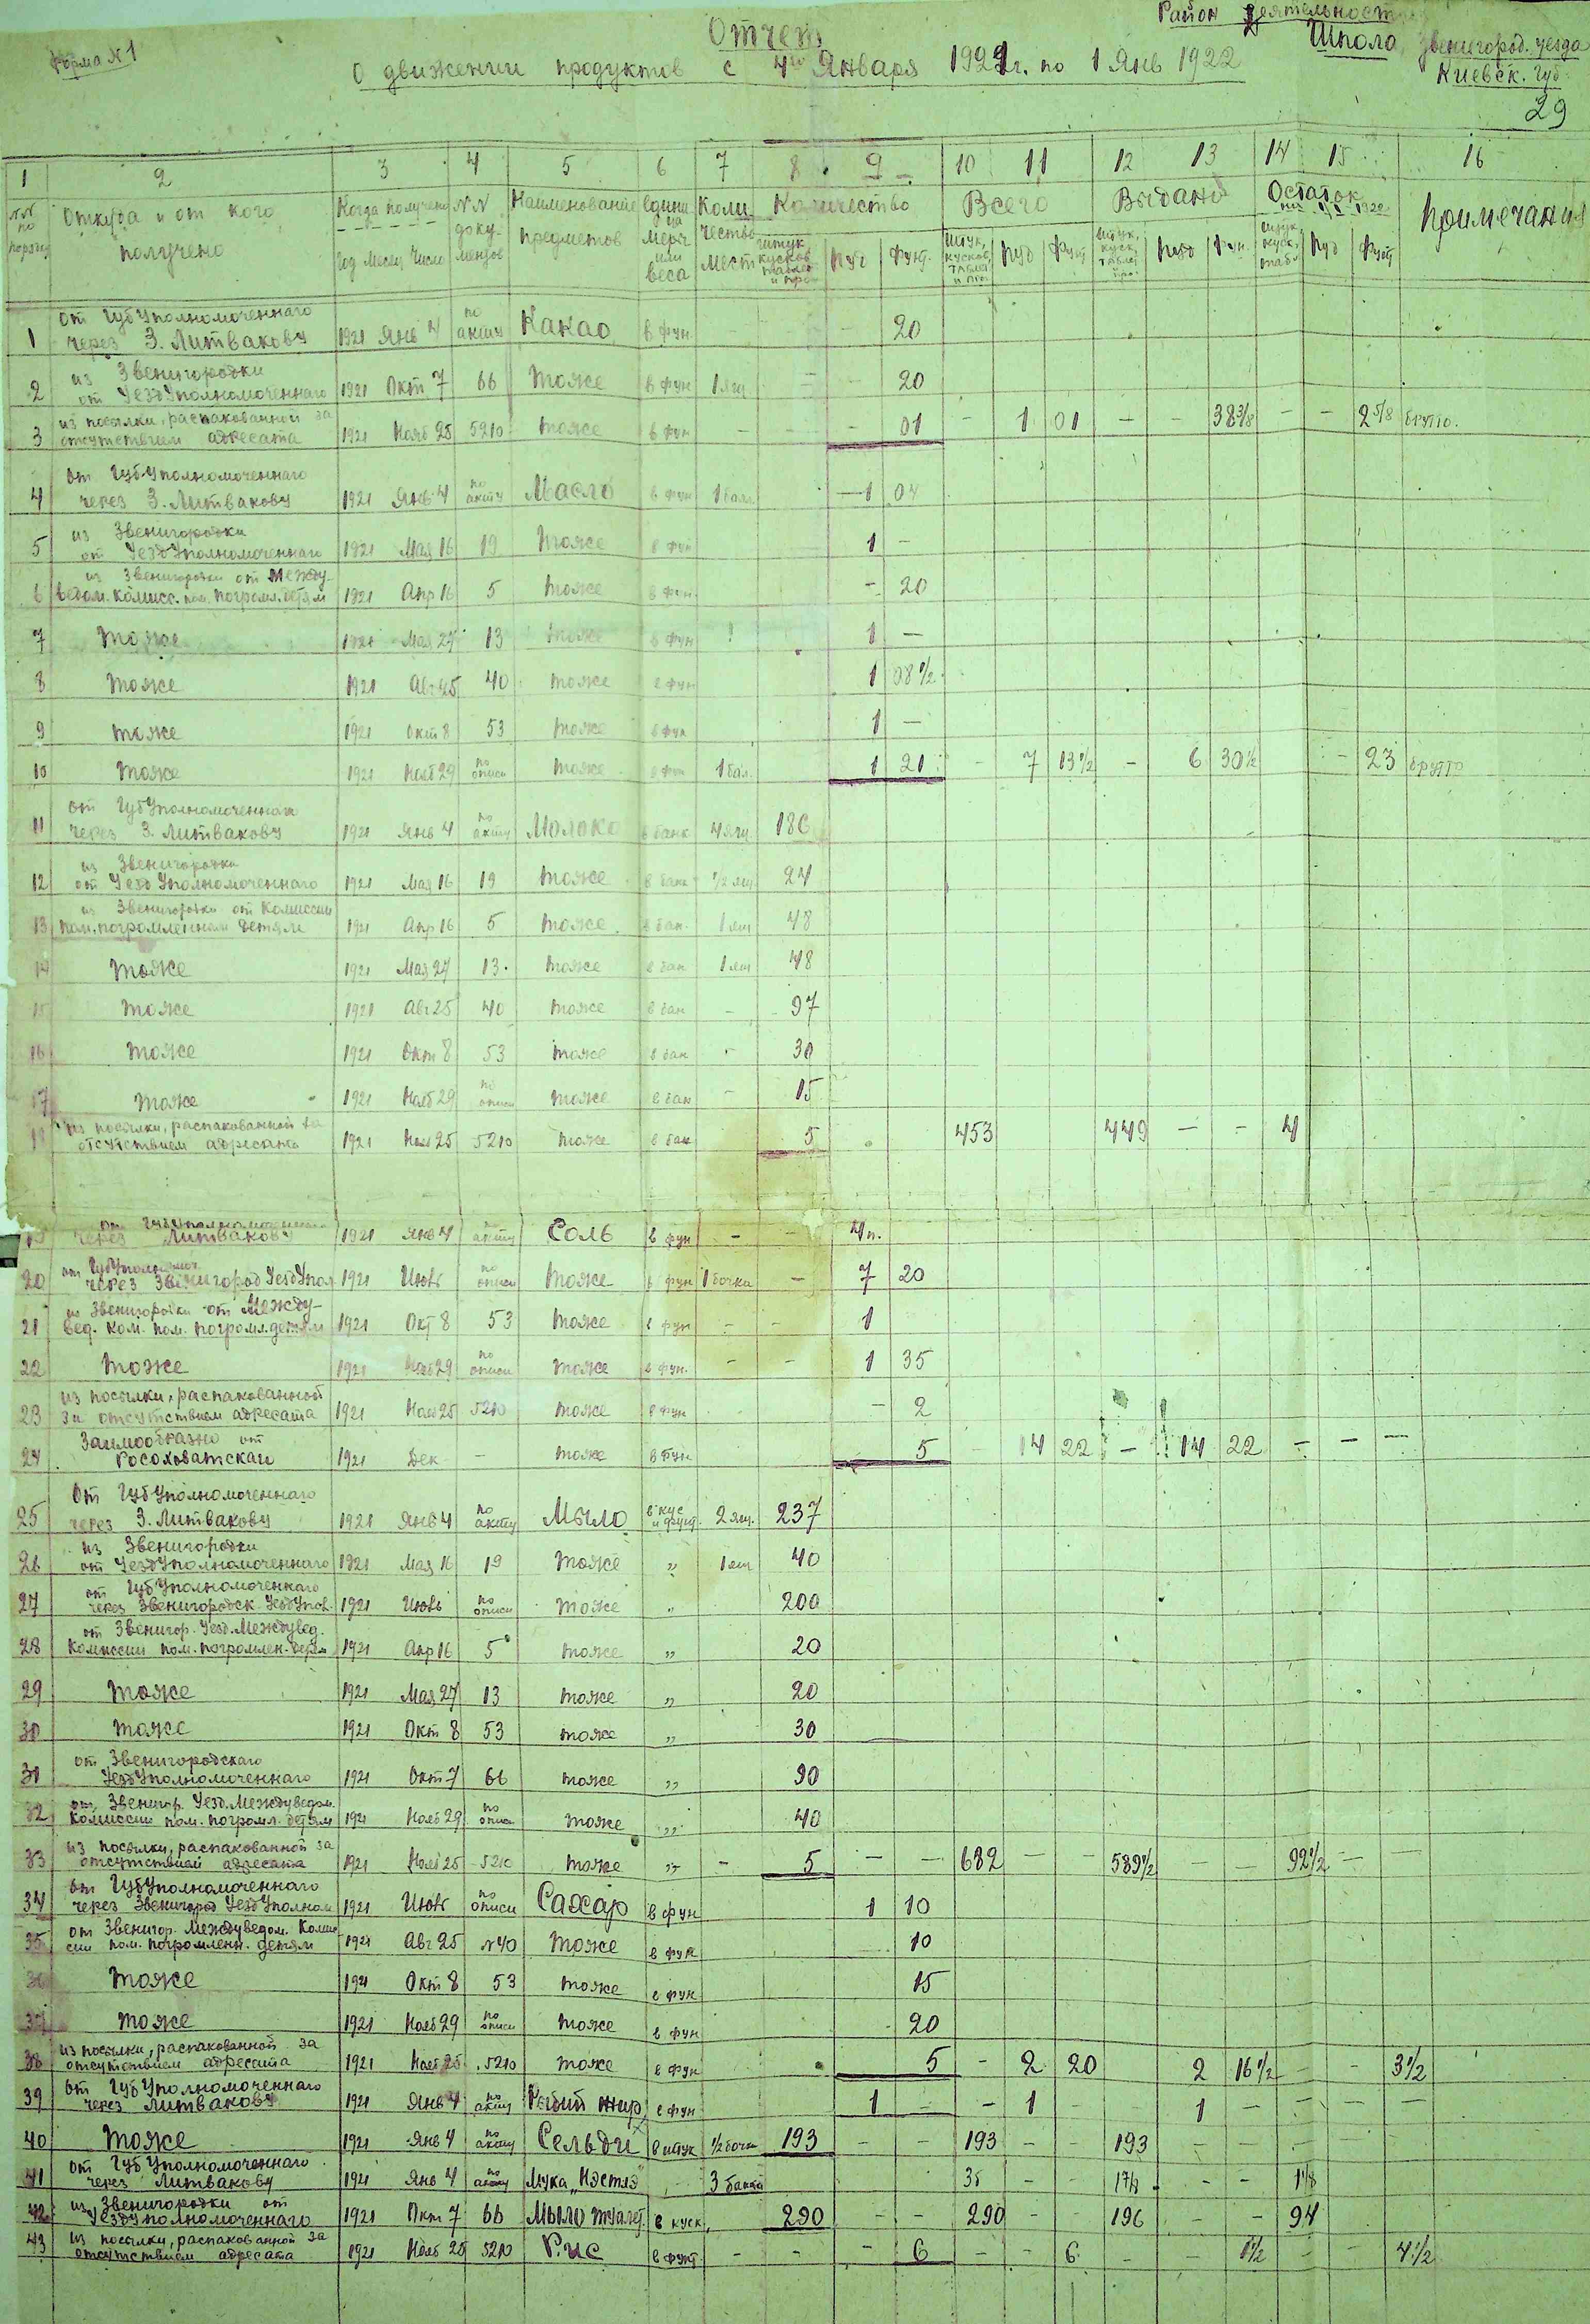 Форма №1
Отчет
о движении продуктов с 4го Января 1921г. по 1 Янв 1922
Район деятельност
Шпола, Звенигород. уезда
Киевск. Губ.
29
1 2 3 4 5 6 7 8 9 10 11 12 13 14 15 16
№№ по порядку Откуда и от кого получено Когда получено год Месяц Число №№ документов Наименование предметов Единица меры или веса Количество мест Количество штук кусков пуд фунт. Всего штук, кусков, пуд фунт Выдано штук, куск, пуд фун. Остаток на 1/I 1922 штук, куск, пуд фунт Примечания
1 от ГубУполномоченнаго через З. Литвакову 1921 Янв 4 по акту Какао в фун. – – – 20
2 из Звенигородки от УездУполномоченнаго 1921 Окт 7 66 тоже в фун 1 ящ – – 20
3 из посылки, распакованной за отсутствием адресата 1921 Нояб 25 5210 тоже в фун – – – 01 – 1 01 – – 38 3/8 – – 2 5/8 брутто.
4 От ГубУполномоченнаго через З. Литвакову 1921 Янв 4 по акту Масло в фун 1 бал – 1 04
5 из Звенигородки от УездУполномоченнаго 1921 Мая 16 19 тоже в фун 1 –
6 из Звенигородки от Междуведом. комисс. пом. погромл. детям 1921 Апр 16 5 тоже в фун. – 20
7 тоже 1921 Мая 27 13 тоже в фун 1 –
8 тоже 1921 Авг 25 40 тоже в фун 1 08 1/2
9 тоже 1921 Окт 8 53 тоже в фун 1 –
10 тоже 1921 Нояб 29 по описи тоже в фун 1 бал. 1 21 – 7 13 1/2 – 6 30 1/2 – 23 брутто
11 от ГубУполномоченнаго через З. Литвакову 1921 Янв 4 по акту Молоко в банк 4 ящ 186
12 из Звенигородки от УездУполномоченнаго 1921 Мая 16 19 тоже в банк 1/2 ящ 24
13 из Звенигородки от Комиссии пом. погромленным детям 1921 Апр 16 5 тоже в бан. 1 ящ 48
14 тоже 1921 Мая 27 13 тоже в бан 1 ящ 48
15 тоже 1921 Авг 25 40 тоже в бан – 97
16 тоже 1921 Окт 8 53 тоже в бан – 30
17 тоже 1921 Нояб 29 по описи тоже в бан – 15
18 из посылки, распакованной за отсутствием адресата 1921 Нояб 25 5210 тоже в бан 5 453 449 – – 4
19 от ГубУполномоченнаго через Литвакову 1921 Янв 4 по акту Соль в фун – – 4 п.
20 от ГубУполномоч через Звенигород УездУпол 1921 Июль по описи тоже в фун 1 бочка – 7 20
21 из Звенигородки от Междувед. ком. пом. погромл. детям 1921 Окт 8 53 тоже в фун – – 1
22 тоже 1921 Нояб 29 по описи тоже в фун. – – 1 35
23 из посылки, распакованной за отсутствием адресата 1921 Нояб 25 5210 тоже в фун – 2
24 Заимообразно от Росоховатскаго 1921 Дек – тоже в фун 5 – 14 22 – 14 22 – – –
25 От ГубУполномоченнаго через З. Литвакову 1921 Янв 4 по акту Мыло в кус и фунт. 2 ящ. 237
26 из Звенигородки от УездУполномоченнаго 1921 Мая 16 19 тоже „ 1 ящ 40
27 от ГубУполномоченнаго через Звенигородск УездУпол. 1921 Июль по описи тоже „ 200
28 от Звенигор. Уезд. Междувед. Комиссии пом. погромлен. детям 1921 Апр 16 5 тоже „ 20
29 тоже 1921 Мая 27 13 тоже „ 20
30 тоже 1921 Окт 8 53 тоже „ 30
31 от Звенигородскаго УездУполномоченнаго 1921 Окт 7 66 тоже „ 90
32 от Звенигор. Уезд. Междуведом. Комиссии пом. погромл. детям 1921 Нояб 29 по описи тоже „ 40
33 из посылки, распакованной за отсутствием адресата 1921 Нояб 25 5210 тоже „ – 5 – – 682 – – 589 1/2 – – 92 1/2 – –
34 от ГубУполномоченнаго через Звенигород УездУполном 1921 Июль по описи Сахар в фун 1 10
35 от Звенигор. Междуведом. Комиссии пом. погромленн. детям 1921 Авг 25 №40 тоже в фун 10
36 тоже 1921 Окт 8 53 тоже в фун 15
37 тоже 1921 Нояб 29 по описи тоже в фун 20
38 из посылки, распакованной за отсутствием адресата 1921 Нояб 25 5210 тоже в фун 5 – 2 20 2 16 1/2 – – 3 1/2
39 от ГубУполномоченнаго через Литвакову 1921 Янв 4 по акту Рыбий жир в фун 1 – – 1 – – 1 – – – –
40 тоже 1921 Янв 4 по акту Сельди в штук 1/2 бочк 193 – – 193 – – 193 – – – – –
41 от ГубУполномоченнаго через Литвакову 1921 Янв 4 по акту Мука „Нэстлэ" 3 банки
42 из Звенигородки от УездУполномоченнаго 1921 Окт 7 66 Мыло туалет. в куск. 290 – – 290 – – 196 – – 94
43 из посылки, распакованной за отсутствием адресата 1921 Нояб 25 5210 Рис в фунт. – – – 6 – – 6 – – 1 1/2 – – 4 1/2